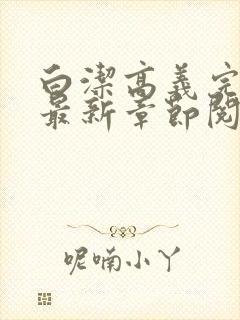 白潔高義完
最新章節閱
呢喃小丫